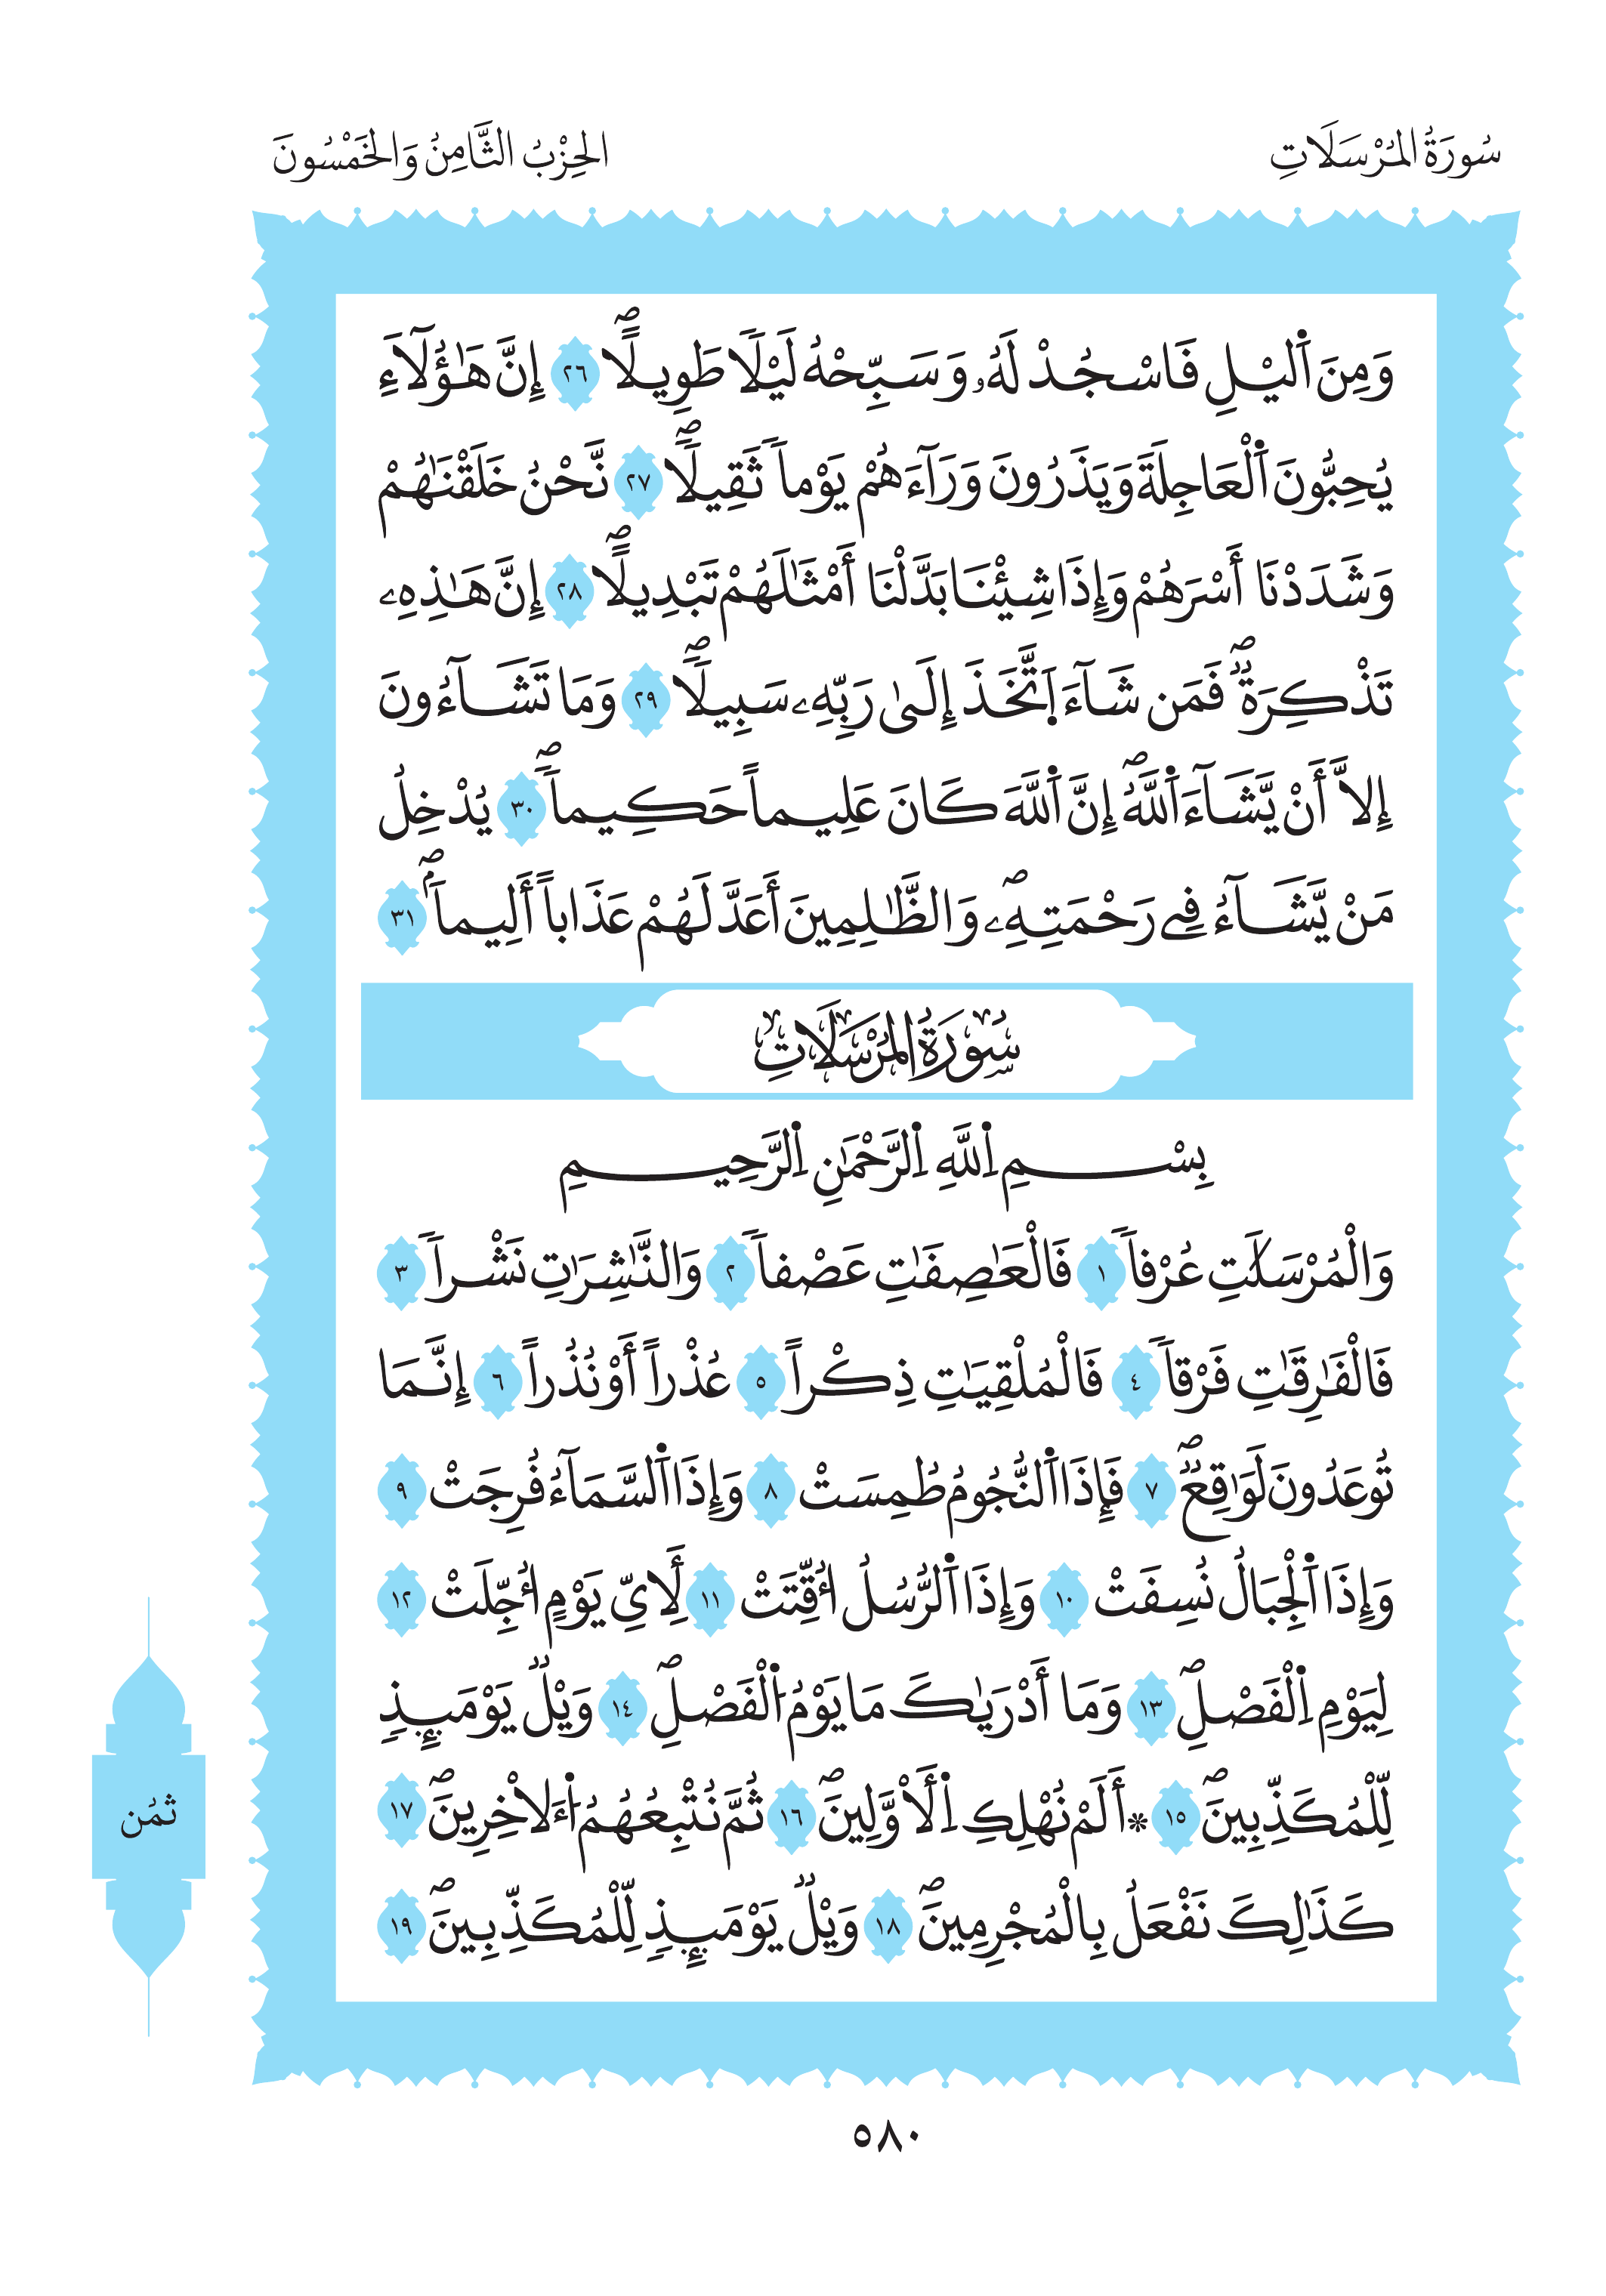 سُورَةُ المُرْسَلَاتِ
الحِزْبُ الثَّامِنُ وَالخَمْسُونَ
وَمِنَ اَ۬ليْلِ فَاسْجُدْ لَهُۥ وَسَبِّحْهُ لَيْلاً طَوِيلاًۖ ٢٦ إِنَّ هَٰٓؤُلَآءِ
يُحِبُّونَ اَ۬لْعَاجِلَةَ وَيَذَرُونَ وَرَآءَهُمْ يَوْماً ثَقِيلاًۖ ٢٧ نَّحْنُ خَلَقْنَٰهُمْ
وَشَدَدْنَا أَسْرَهُمْ وَإِذَا شِئْنَا بَدَّلْنَا أَمْثَٰلَهُمْ تَبْدِيلاًۖ ٢٨ إِنَّ هَٰذِهِۦ
تَذْكِرَةٌۖ فَمَن شَآءَ اَ۪تَّخَذَ إِلَىٰ رَبِّهِۦ سَبِيلاًۖ ٢٩ وَمَا تَشَآءُونَ
إِلآَّ أَنْ يَّشَآءَ اَ۬للَّهُۖ إِنَّ اَ۬للَّهَ كَانَ عَلِيماً حَكِيماًۖ ٣٠ يُدْخِلُ
مَنْ يَّشَآءُ فِے رَحْمَتِهِۦۖ وَالظَّٰلِمِينَ أَعَدَّ لَهُمْ عَذَاباً أَلِيماَۢۖ ٣١
سُورَةُ المُرْسَلَاتِ
بِسْمِ اِ۬للَّهِ اِ۬لرَّحْمَٰنِ اِ۬لرَّحِيمِ
وَالْمُرْسَلَٰتِ عُرْفاً ١ فَالْعَٰصِفَٰتِ عَصْفاً ٢ وَالنَّٰشِرَٰتِ نَشْراً ٣
فَالْفَٰرِقَٰتِ فَرْقاً ٤ فَالْمُلْقِيَٰتِ ذِكْراً ٥ عُذْراً أَوْ نُذُراً ٦ إِنَّمَا
تُوعَدُونَ لَوَٰقِعٌۖ ٧ فَإِذَا اَ۬لنُّجُومُ طُمِسَتْ ٨ وَإِذَا اَ۬لسَّمَآءُ فُرِجَتْ ٩
وَإِذَا اَ۬لْجِبَالُ نُسِفَتْ ١٠ وَإِذَا اَ۬لرُّسُلُ أُقِّتَتْ ١١ لِأَيِّ يَوْمٍ أُجِّلَتْ ١٢
لِيَوْمِ اِ۬لْفَصْلِۖ ١٣ وَمَا أَدْرَىٰكَ مَا يَوْمُ اُ۬لْفَصْلِۖ ١٤ وَيْلٌ يَوْمَئِذٍ
لِّلْمُكَذِّبِينَۖ ١٥ * أَلَمْ نُهْلِكِ اِ۬لَأَوَّلِينَۖ ١٦ ثُمَّ نُتْبِعُهُمُ اُ۬لَأٓخِرِينَۖ ١٧
كَذَٰلِكَ نَفْعَلُ بِالْمُجْرِمِينَۖ ١٨ وَيْلٌ يَوْمَئِذٍ لِّلْمُكَذِّبِينَۖ ١٩
ثمُن
٥٨٠